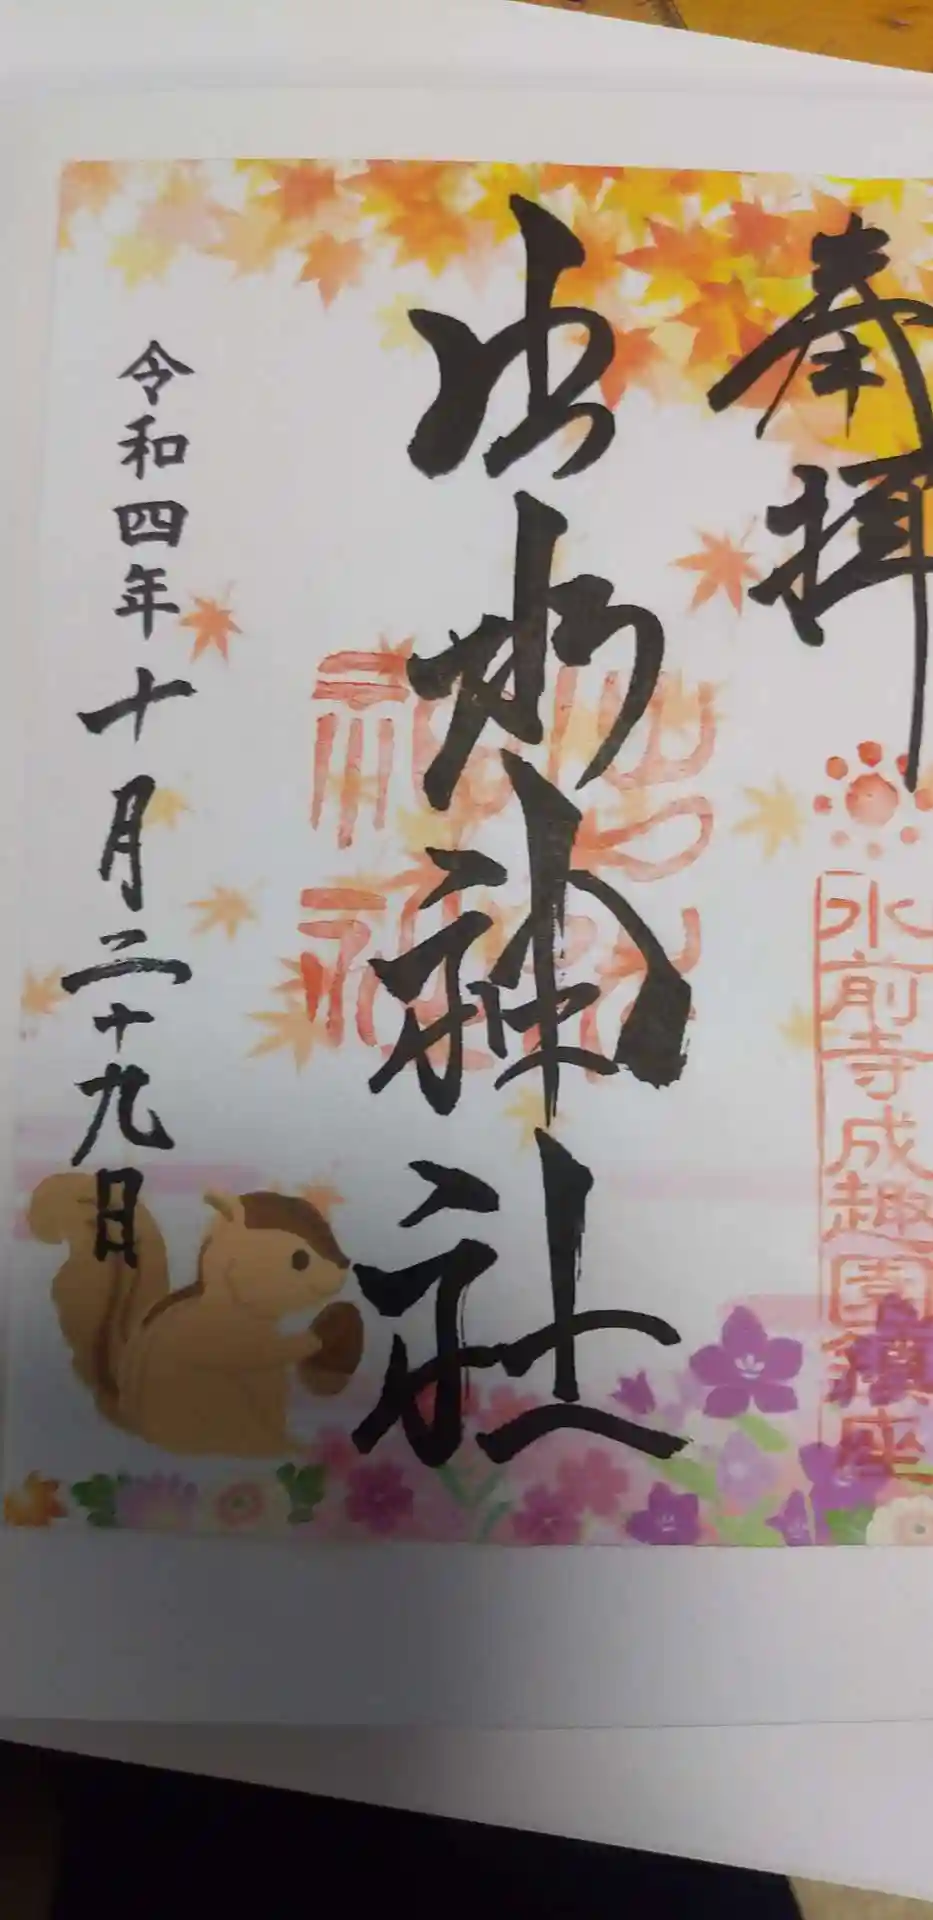 奉拝
水前寺成趣園鎮座
出水神社
出水神社
令和四年十月二十九日